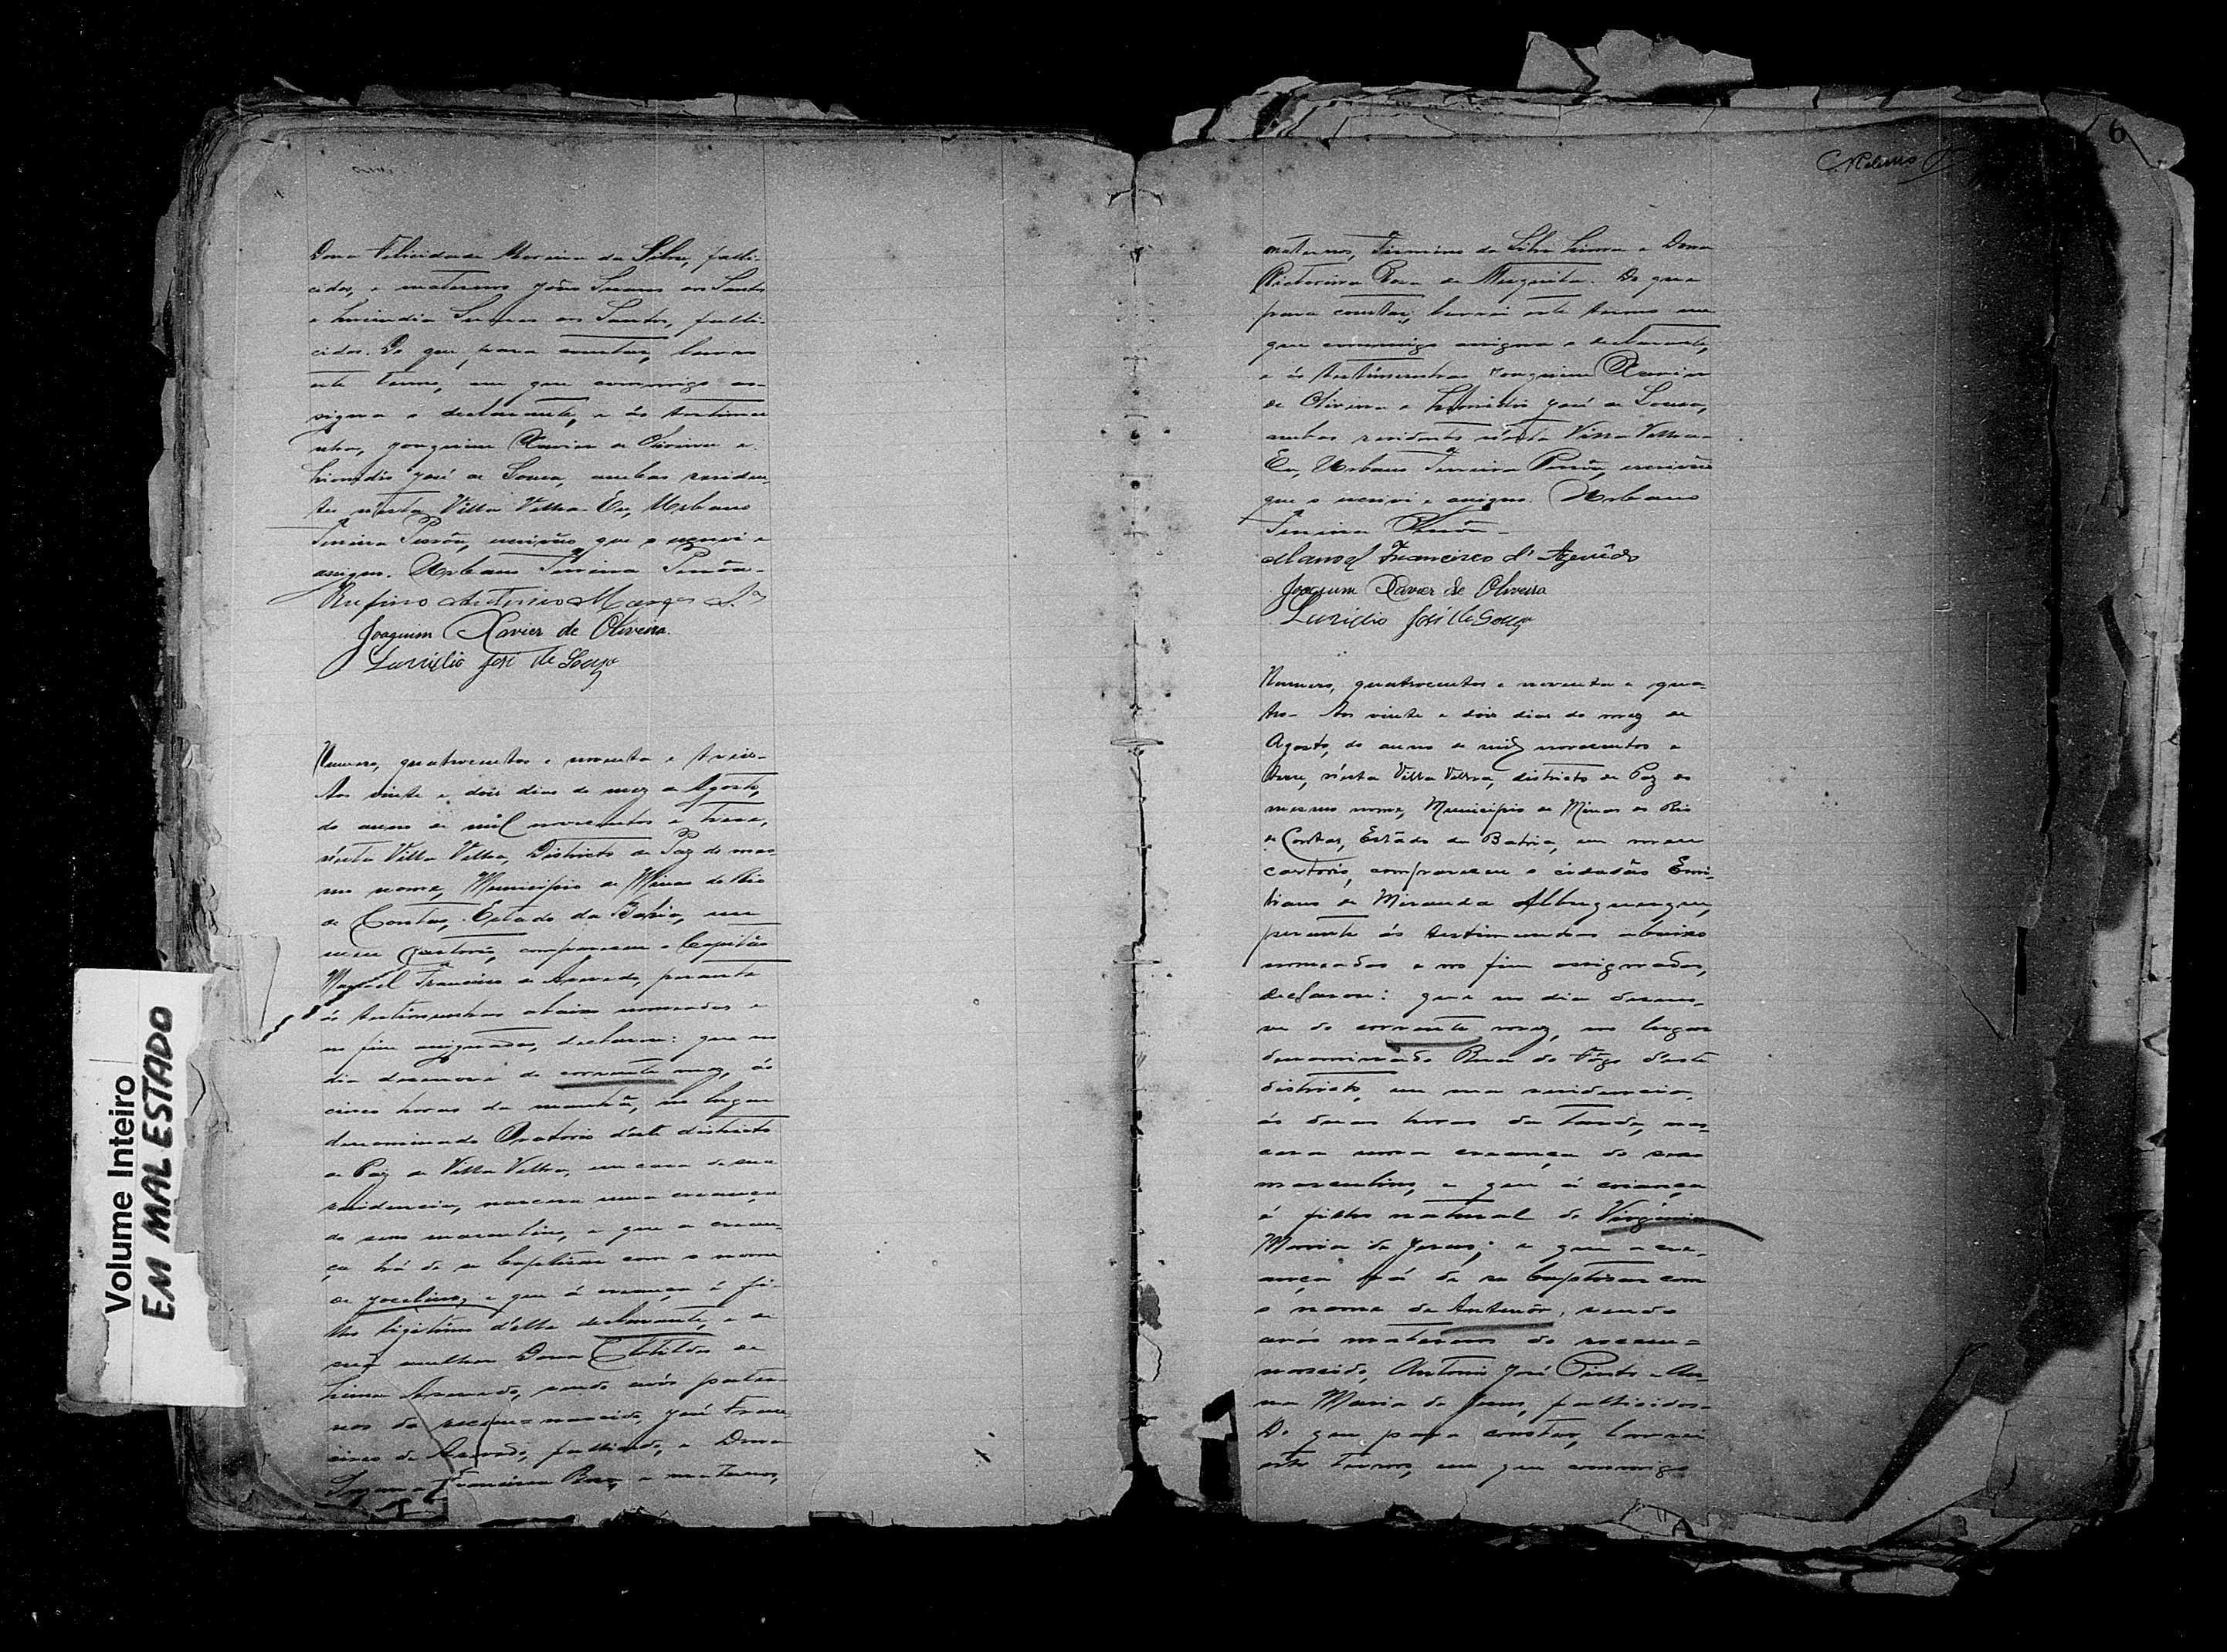 Dona Felicidade Moreira da Silva, falli-
cidos, e maternos João Soares dos Santos
e Lucindia Soares dos Santos, falli-
cidos. Do que, para constar, lavro
este termo, em que commigo as-
signa o declarante, e ás testimu-
nhas, Joaquim Xavier de Oliveira e
José de Souza, ambas residen-
tes n'esta Villa Velha. Eu, Urbano
Pessôa, escrivão que o escrevi e
assigno. Urbano Pessôa.
Rufino Antonio
Joaquim Xavier de Oliveira.
José de Souza
Numero, quatrocentos e noventa e treis.
Aos vinte e dois dias do mez de Agosto,
do anno de mil novecentos e treze,
n'esta Villa Velha, Districto de Paz do mes-
mo nome, Municipio de Minas do Rio
de Contas, Estado da Bahia, em
meu Cartorio, compareceu o Capitão
Manoel Francisco de Azevedo, perante
ás testimunhas abaixo nomeadas e
no fim assignadas, declarou: que no
dia desenove do corrente mez, ás
cinco horas da manhã, no lugar
denominado Oratorio d'este districto
de Paz de Villa Velha, em casa de sua
residencia, nascera uma creança
do sexo masculino, e que a crean-
ça há de se baptisar com o nome
de Jocelino, e que á creança é fi-
lho ligitimo d'elle declarante, e de
sua mulher Dona Clotildes de
Lima Azevedo, sendo avós pater-
nos do recem-nascido, José Fran-
cisco de Azevedo, fallicido, e Dona
Francisca Rosa, e maternos,
6
maternos, Firmino da Silva Lima e Dona
Victorina Rosa de Mesquita. Do que
para constar, lavrei este termo em
que commigo assigna o declarante,
e ás testimunhas Joaquim Xavier
de Oliveira e José de Souza,
ambos residentes n'esta Villa Velha.
Eu, Urbano Pessôa, escrivão
que o escrevi e assigno. Urbano
Pessôa.
Manoel Francisco d'Azevêdo
Joaquim Xavier de Oliveira
José de Souza
Numero, quatrocentos e noventa e qua-
tro. Aos vinte e dois dias do mez de
Agosto, do anno de mil novecentos e
treze, n'esta Villa Velha, districto de Paz do
mesmo nome, Municipio de Minas do Rio
de Contas, Estado da Bahia, em meu
cartorio, compareceu o cidadão Emi-
liano de Miranda Albuquerque,
perante ás testimunhas abaixo
nomeadas e no fim assignadas,
declarou: que no dia deseno-
ve do corrente mez, no lugar
denominado Rua do Fôgo d'este
districto, em sua residencia,
ás duas horas da tarde, nas-
cera uma creança do sexo
masculino, e que á criança
é filho natural de Virginia
Maria de Jesus; e que a cre-
ança há de se baptisar com
o nome de Antenôr, sendo
avós maternos do recem-
nascido, Antonio José Pinto e An-
na Maria de Jesus, fallicidos.
Do que para constar, lavrei
este termo, em que commigo
Volume Inteiro
EM MAL ESTADO